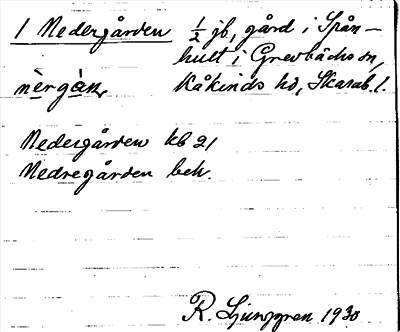 1 Nedergården ½ jb, gård i Spån-
hult i Grevbäcks sn,
nèrgàn, Kåkinds hd, Skarab. l.
Nedergården kb 21
Nedregården beh.
R. Ljunggren 1930